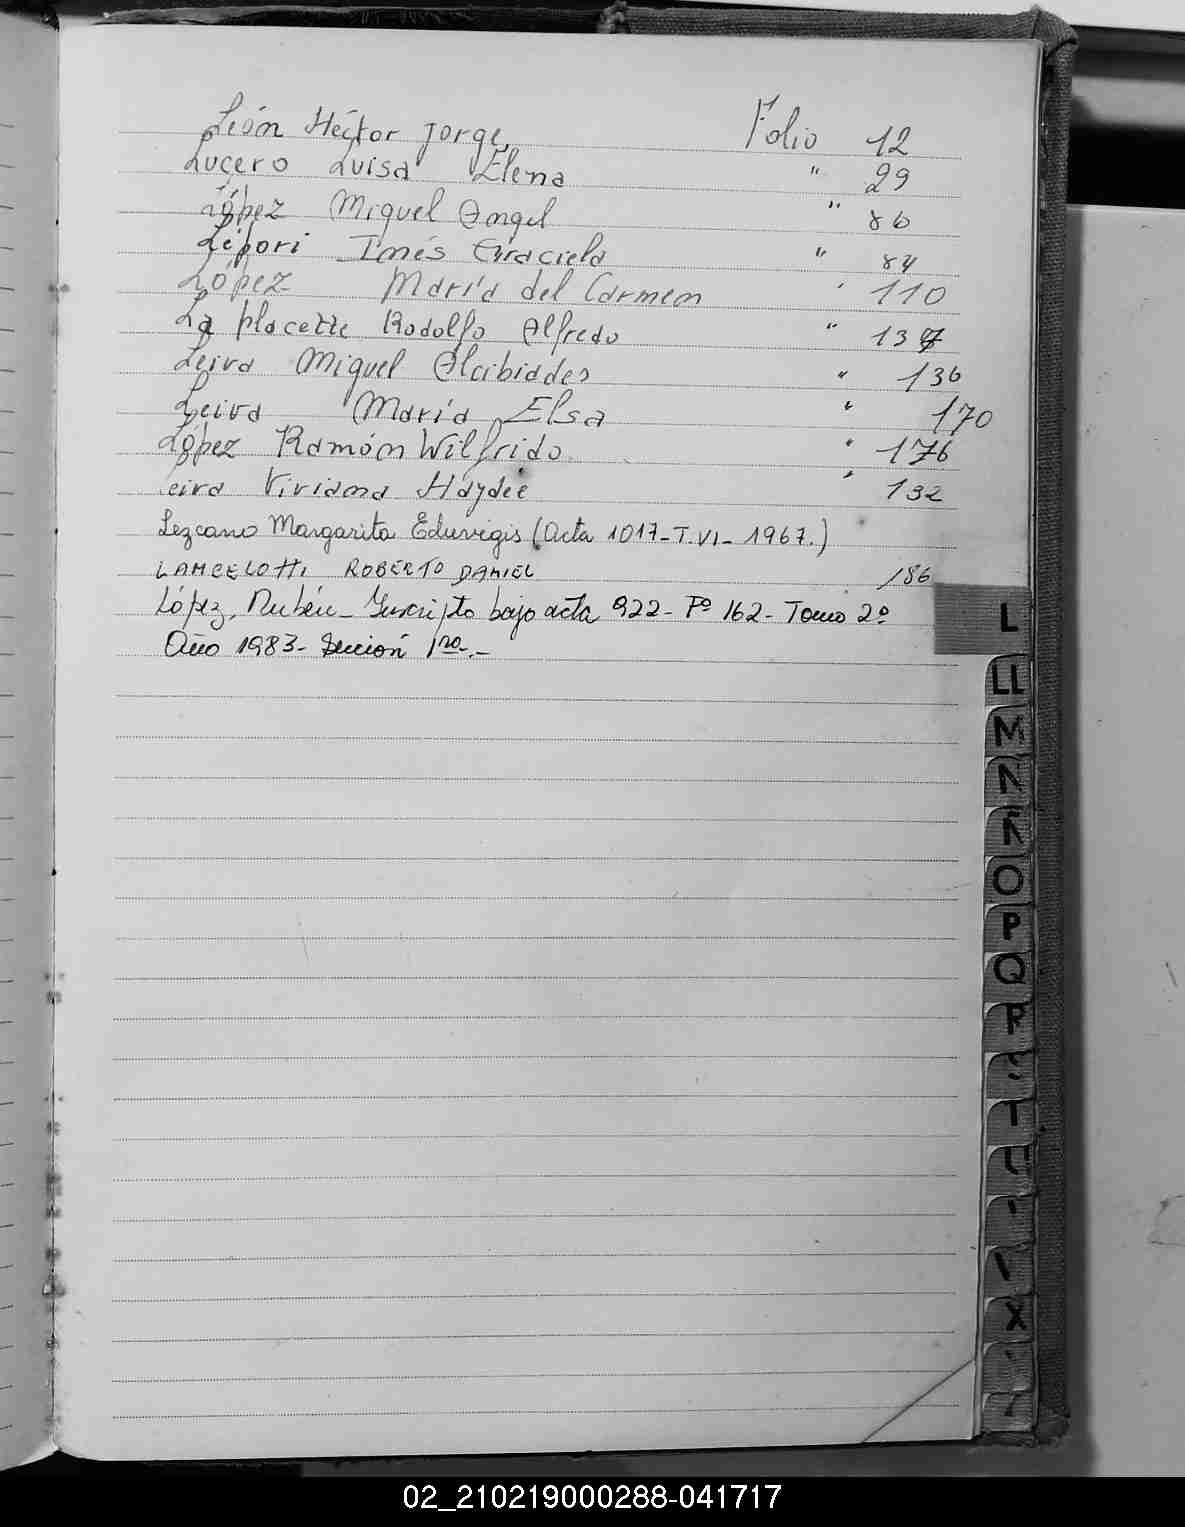 León Héctor Jorge Folio 12
Lucero Luisa Elena " 29
López Miguel Angel " 86
Lépori Inés Graciela " 84
López María del Carmen " 110
La placette Rodolfo Alfredo " 137
Leiva Miguel Alcibiades " 136
Leiva María Elsa " 170
López Ramón Wilfrido " 176
eiva Viviana Haydeé " 132
Lezcano Margarita Eduvigis (Acta 1017-T.VI- 1967.)
LANCELOTTI ROBERTO DANIEL 186
López, Rubén - Inscripto bajo acta 922- Fº 162- Tomo 2º
Año 1983- Sección 1ra.-
L
LL
M
O
P
Q
R
T
X
02_210219000288-041717